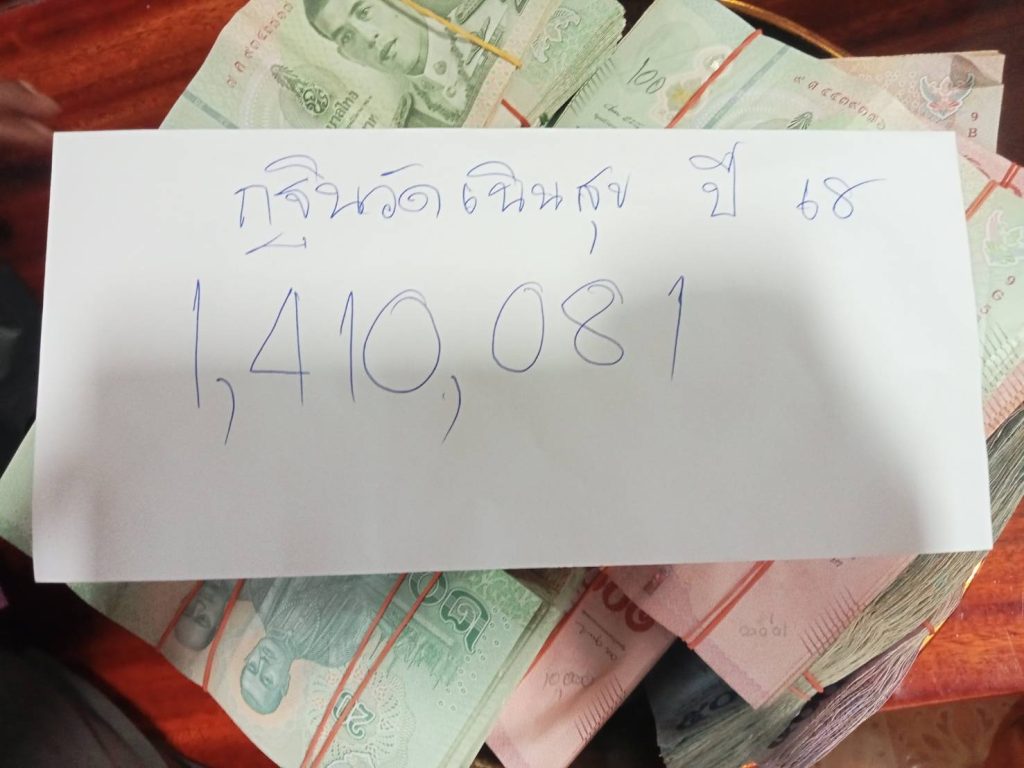 กฐินวัดเนินสุข ปี ๖๘
1,410,081
100
10,000